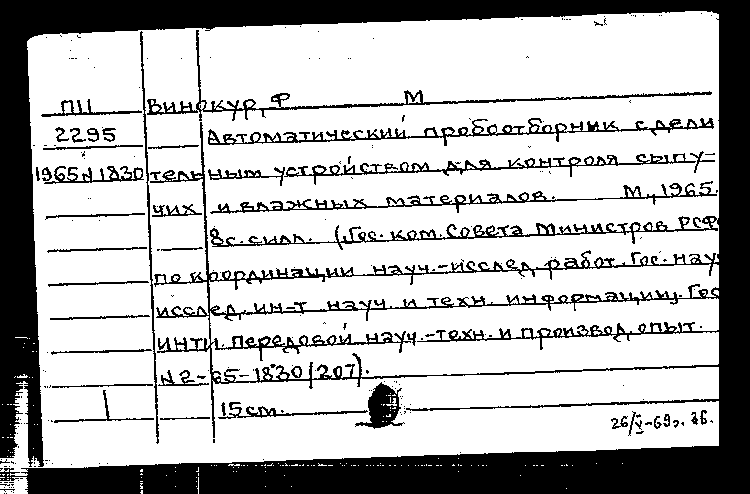 П11 Винокур, Ф М
2295 Автоматический пробоотборник с дели
1965 N 1830 тельным устройством для контроля сыпу-
чих и влажных материалов. М., 1965.
8с. силл. (Гос. ком. Совета Министров РСФ
по координации науч.-исслед. работ. Гос. науч
исслед. ин-т науч. и техн. информации. Гос
ИНТИ. Передовой науч.-техн. и производ. опыт.
N 2-65-1830/207).
15 см.